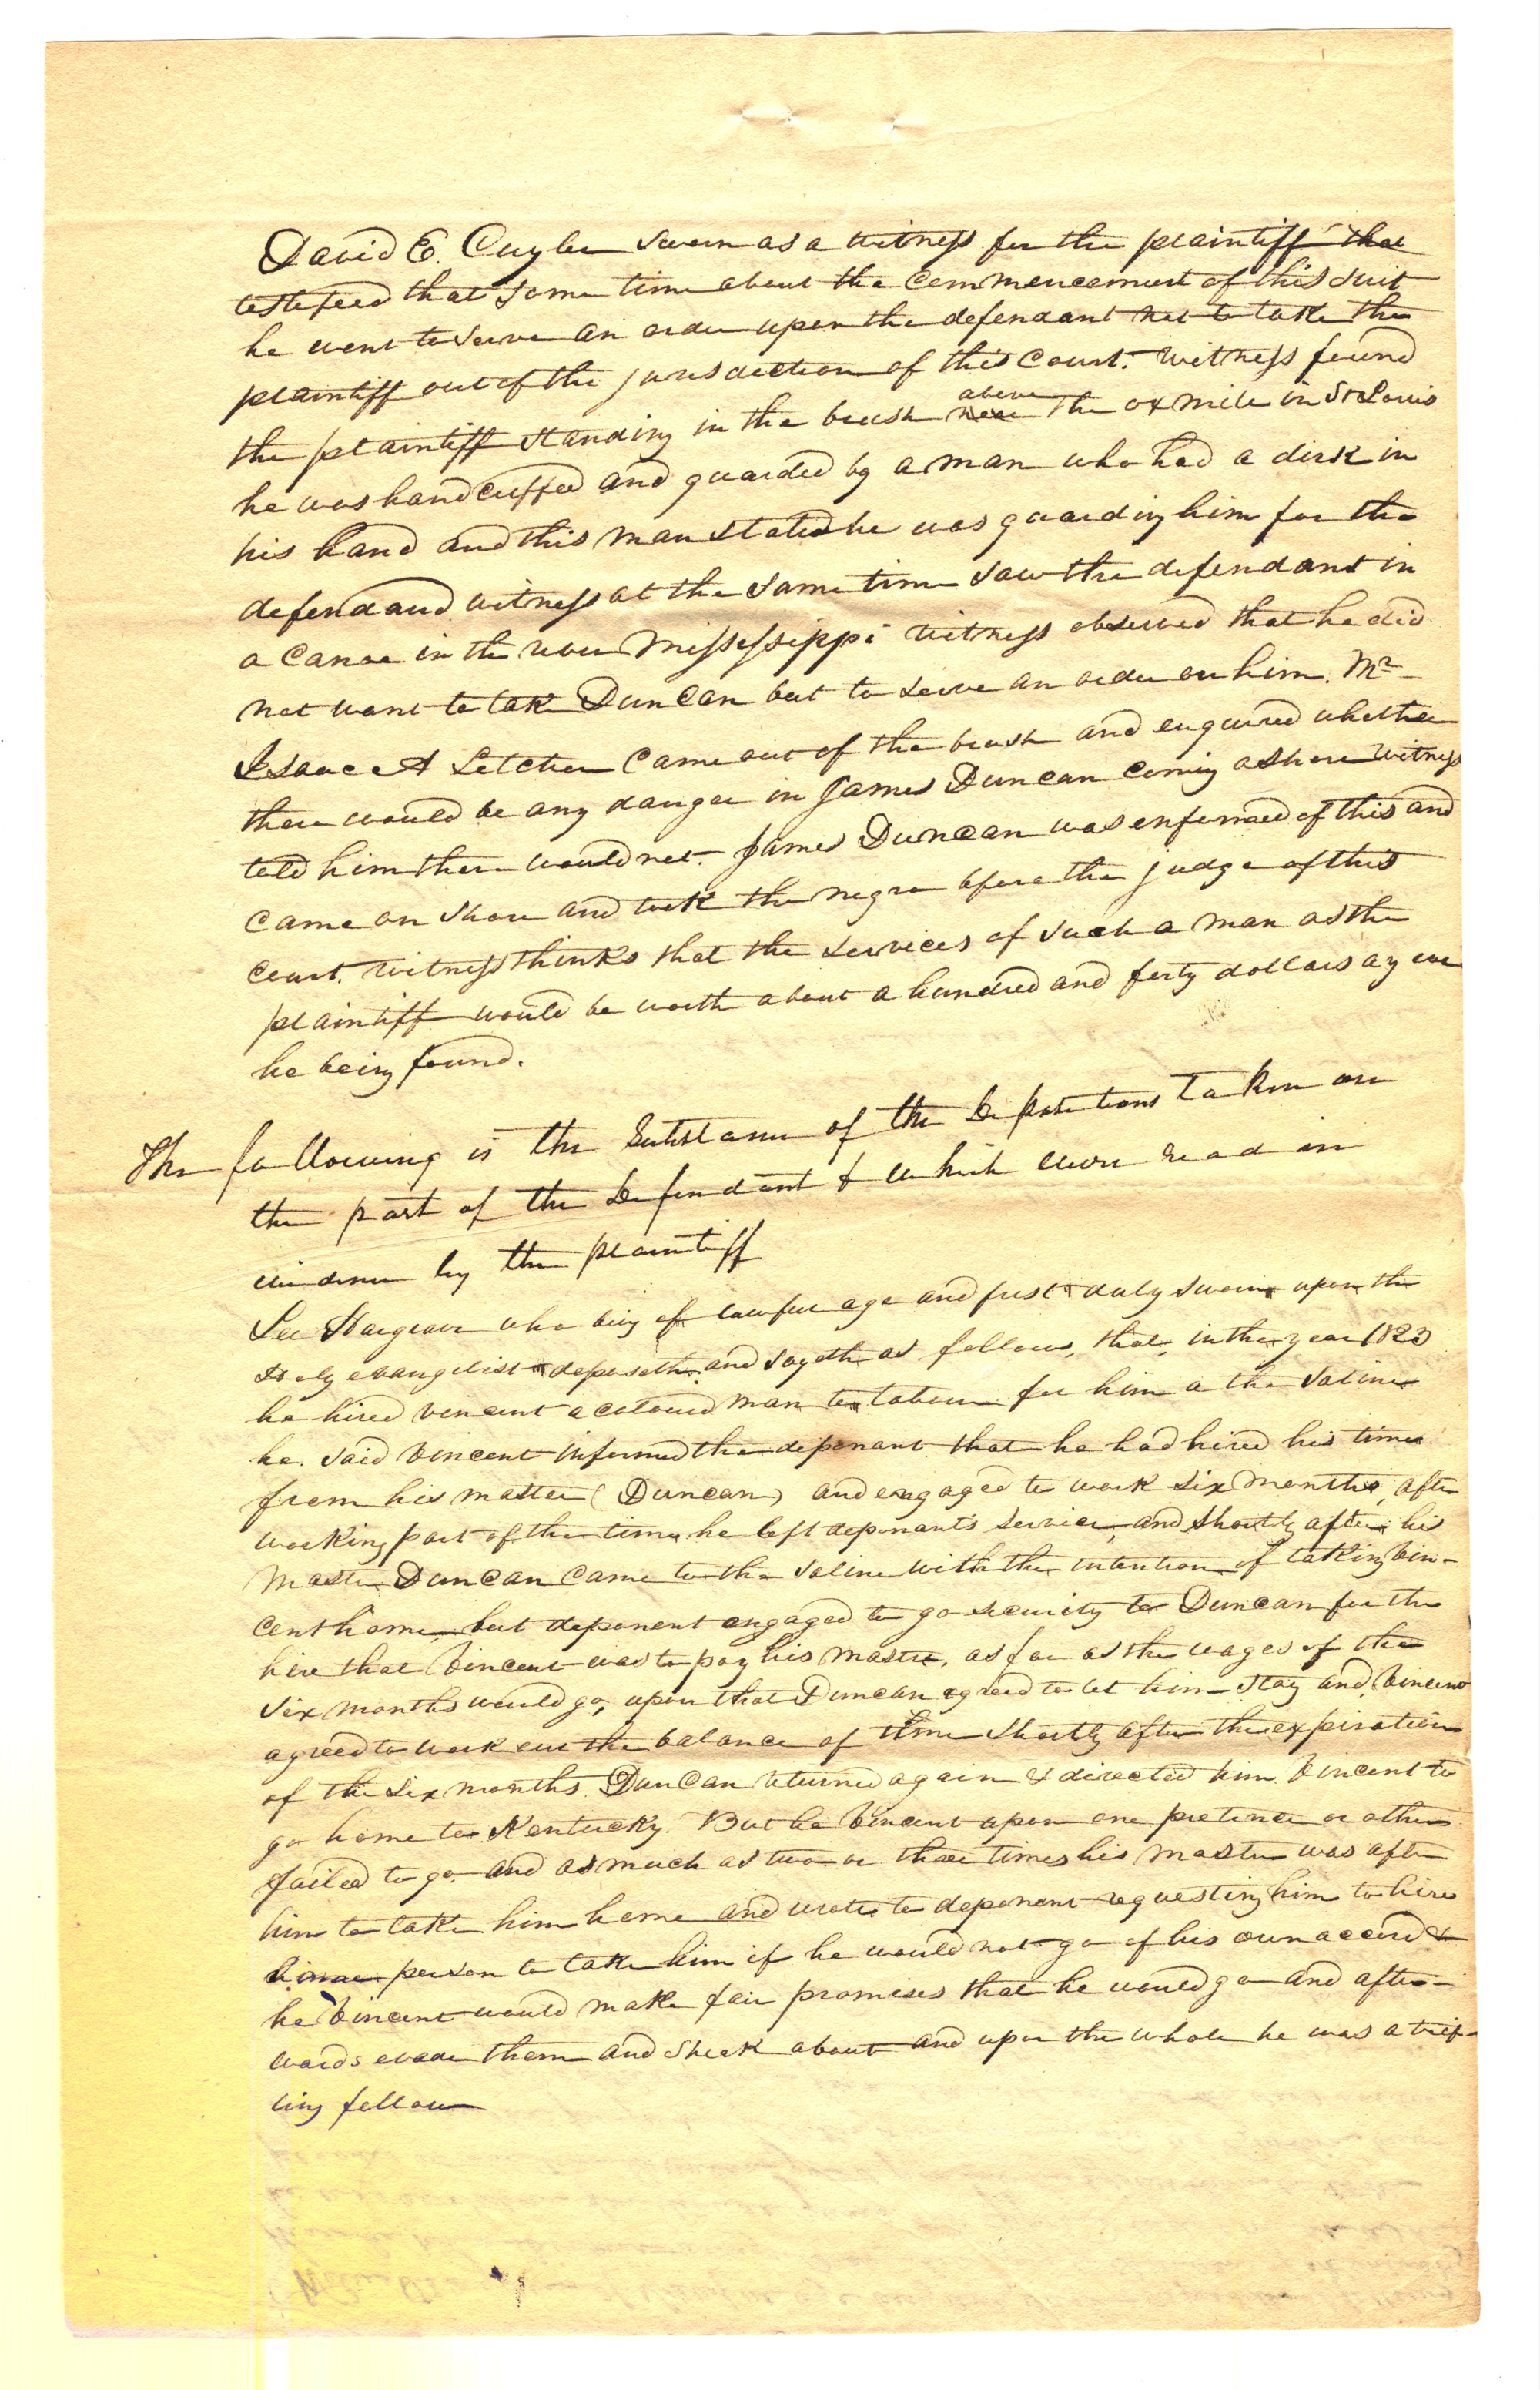 David E. Cuyler sworn as a witness for the plaintiff that
testefeed that some time about the commencement of this suit
he went to serve an order upon the defendant not to take the
plaintiff out of the jurisdiction of this Court. Witness found
the plaintiff standing in the brush near above the ox mill in St Louis
he was handcuffed and guarded by a man who had a dirk in
his hand and this man stated he was guarding him for the
defendand witness at the same time saw the defendant in
a Canoe in the river Mississippi witness observed that he did
not want to take Duncan but to serve an order on him. Mr
Isaac A Letcher Came out of the brush and enquired whether
there would be any danger in James Duncan coming ashore witness
told him there would not. James Duncan was enformed of this and
came on shore and took the negro before the judge of this
Court. Witness thinks that the services of such a man as the
plaintiff would be worth about a hundred and forty dollars a year
he being found.
The following is the Substance of the Depositions taken on
the part of the Defendant & which were read in
evidence by the plaintiff
Lee Hargrave who being of lawful age and first duly sworn upon the
Holy evangelist deposeth and sayeth as follows, that, in the year 1823
he hired vincent a coloured man to labour for him a the saline
he. said Vincent informed the deponant that he had hired his time
from his master (Duncan) and engaged to work six months, after
working part of the time he left deponants service, and shortly after his
master Duncan came to the saline with the intention of taking Vin-
cent home, but deponent engaged to go security to Duncan for the
hire that Vincent was to pay his master, as far as the wages of the
six months would go, upon that Duncan agreed to let him stay and Vincent
agreed to work out the balance of time shortly after the expiration
of the six months. Duncan returned again & directed him Vincent to
go home to Kentucky. But he Vincent upon one pretence or other
failed to go. and as much as two or three times his master was after
him to take him home and wrote to deponent requesting him to hire
person to take him if he would not go of his own accord &
he Vincent would make fair promises that he would go and after-
wards evade them and sheek about and upon the whole he was a trif-
ling fellow